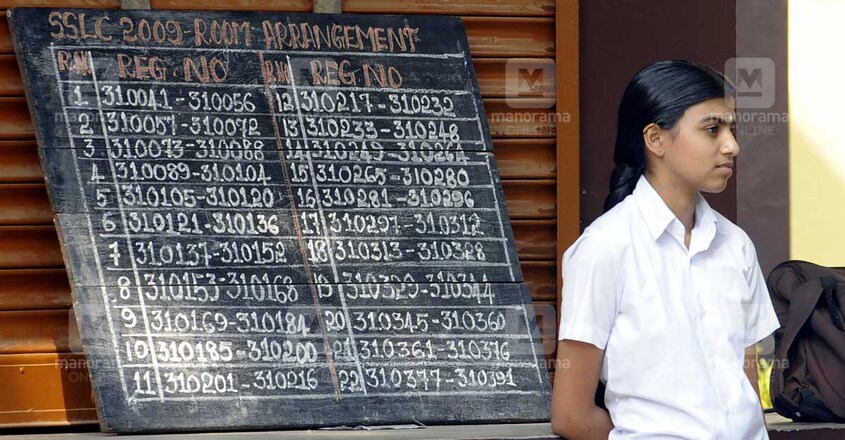 SSLC 2009-ROOM ARRANGEMENT
R.No REG. NO R.No REG NO
1 310041-310056 12 310217-310232
2 310057-310072 13 310233-310248
3 310073-310088 14 310249-310264
4 310089-310104 15 310265-310280
5 310105-310120 16 310281-310296
6 310121-310136 17 310297-310312
7 310137-310152 18 310313-310328
8 310153-310168 19 310329-310344
9 310169-310184 20 310345-310360
10 310185-310200 21 310361-310376
11 310201-310216 22 310377-310391
manorama
ONLINE
manorama
ONLINE
manorama
ONLINE
manorama
ONLINE
manorama